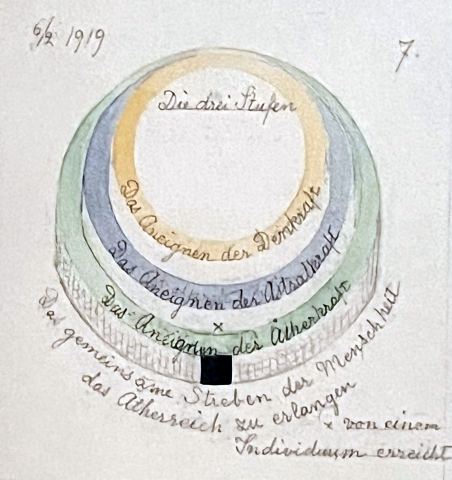 6/2 1919
7.
Die drei Stufen
Das Aneignen der Denkkraft
Das Aneignen der Astralkraft
Das Aneignen der Ätherkraft
×
Das gemeinsame Streben der Menschheit
das Ätherreich zu erlangen
× von einem
Individuum erreicht